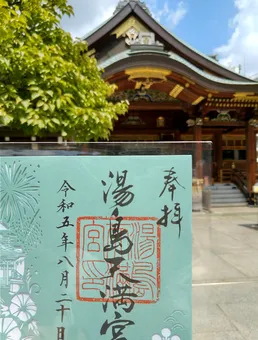 奉拝
湯島天満宮
令和五年八月二十日